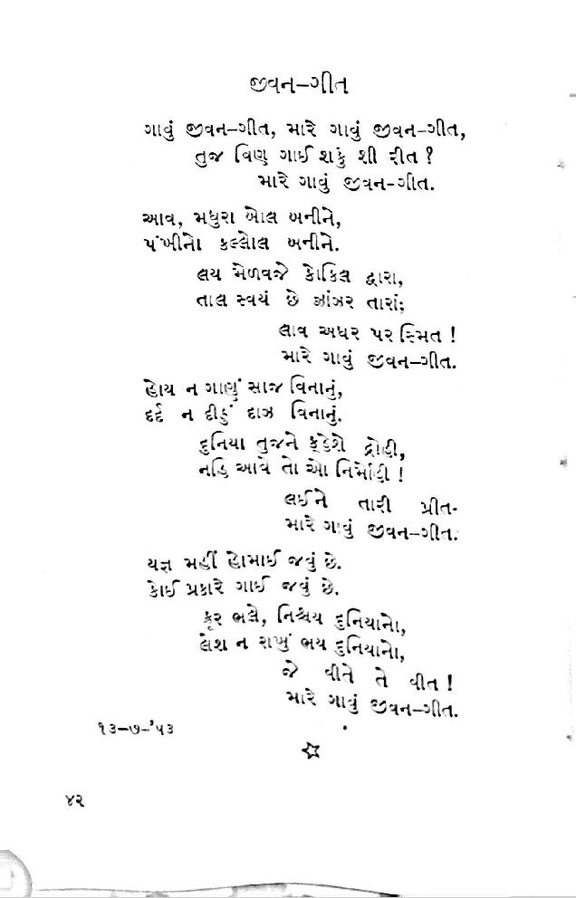 જીવન-ગીત
ગાવું જીવન-ગીત, મારે ગાવું જીવન-ગીત,
તુજ વિણ ગાઈ શકું શી રીત ?
મારે ગાવું જીવન-ગીત.
આવ, મધુરા બોલ બનીને,
પંખીનો કલ્લોલ બનીને.
લય મેળવજે કોકિલ દ્વારા,
તાલ સ્વયં છે ઝાંઝર તારાં;
લાવ અધર પર સ્મિત !
મારે ગાવું જીવન-ગીત.
હોય ન ગાણું સાજ વિનાનું,
દર્દ ન દીઠું દાઝ વિનાનું.
દુનિયા તુજને કહેશે દ્રોહી,
નહિ આવે તો ઓ નિર્મોહી !
લઈને તારી પ્રીત-
મારે ગાવું જીવન-ગીત.
યજ્ઞ મહીં હોમાઈ જવું છે.
કોઈ પ્રકારે ગાઈ જવું છે.
ક્રૂર ભલે, નિશ્ચય દુનિયાનો,
લેશ ન રાખું ભય દુનિયાનો,
જે વીતે તે વીત !
મારે ગાવું જીવન-ગીત.
૧૩-૭-'૫૩
૪૨